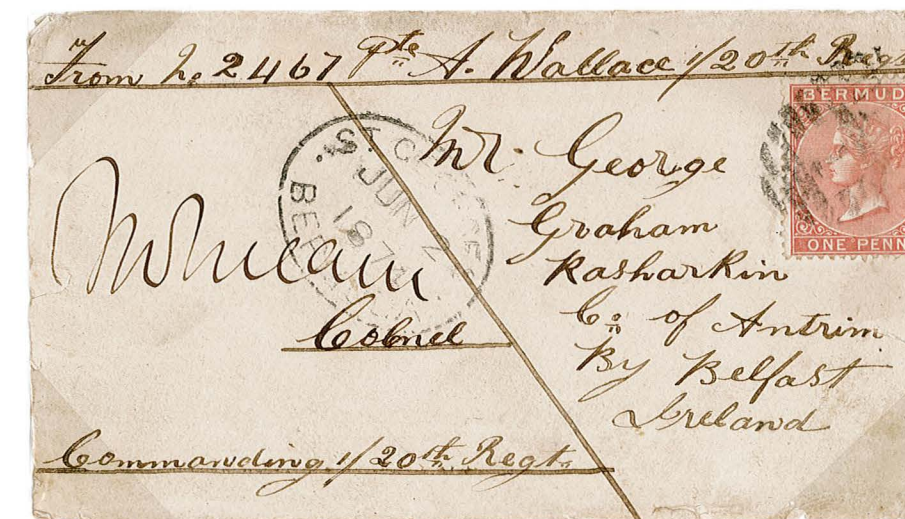 From No 2467 Pte A. Wallace 1/20th Regt
BERMUD
ONE PENN
Mr. George
Graham
Rasharkin
Co. of Antrim
By Belfast
Ireland
JUN 2
Colonel
Commanding 1/20th Regt.